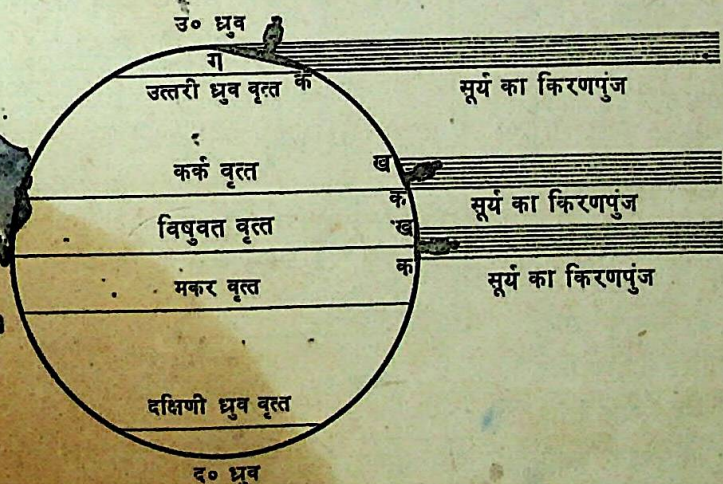 उ० ध्रुव
ग
उत्तरी ध्रुव वृत्त क
सूर्य का किरणपुंज
कर्क वृत्त
ख
क
सूर्य का किरणपुंज
विषुवत वृत्त
ख
क
सूर्य का किरणपुंज
मकर वृत्त
दक्षिणी ध्रुव वृत्त
द० ध्रुव